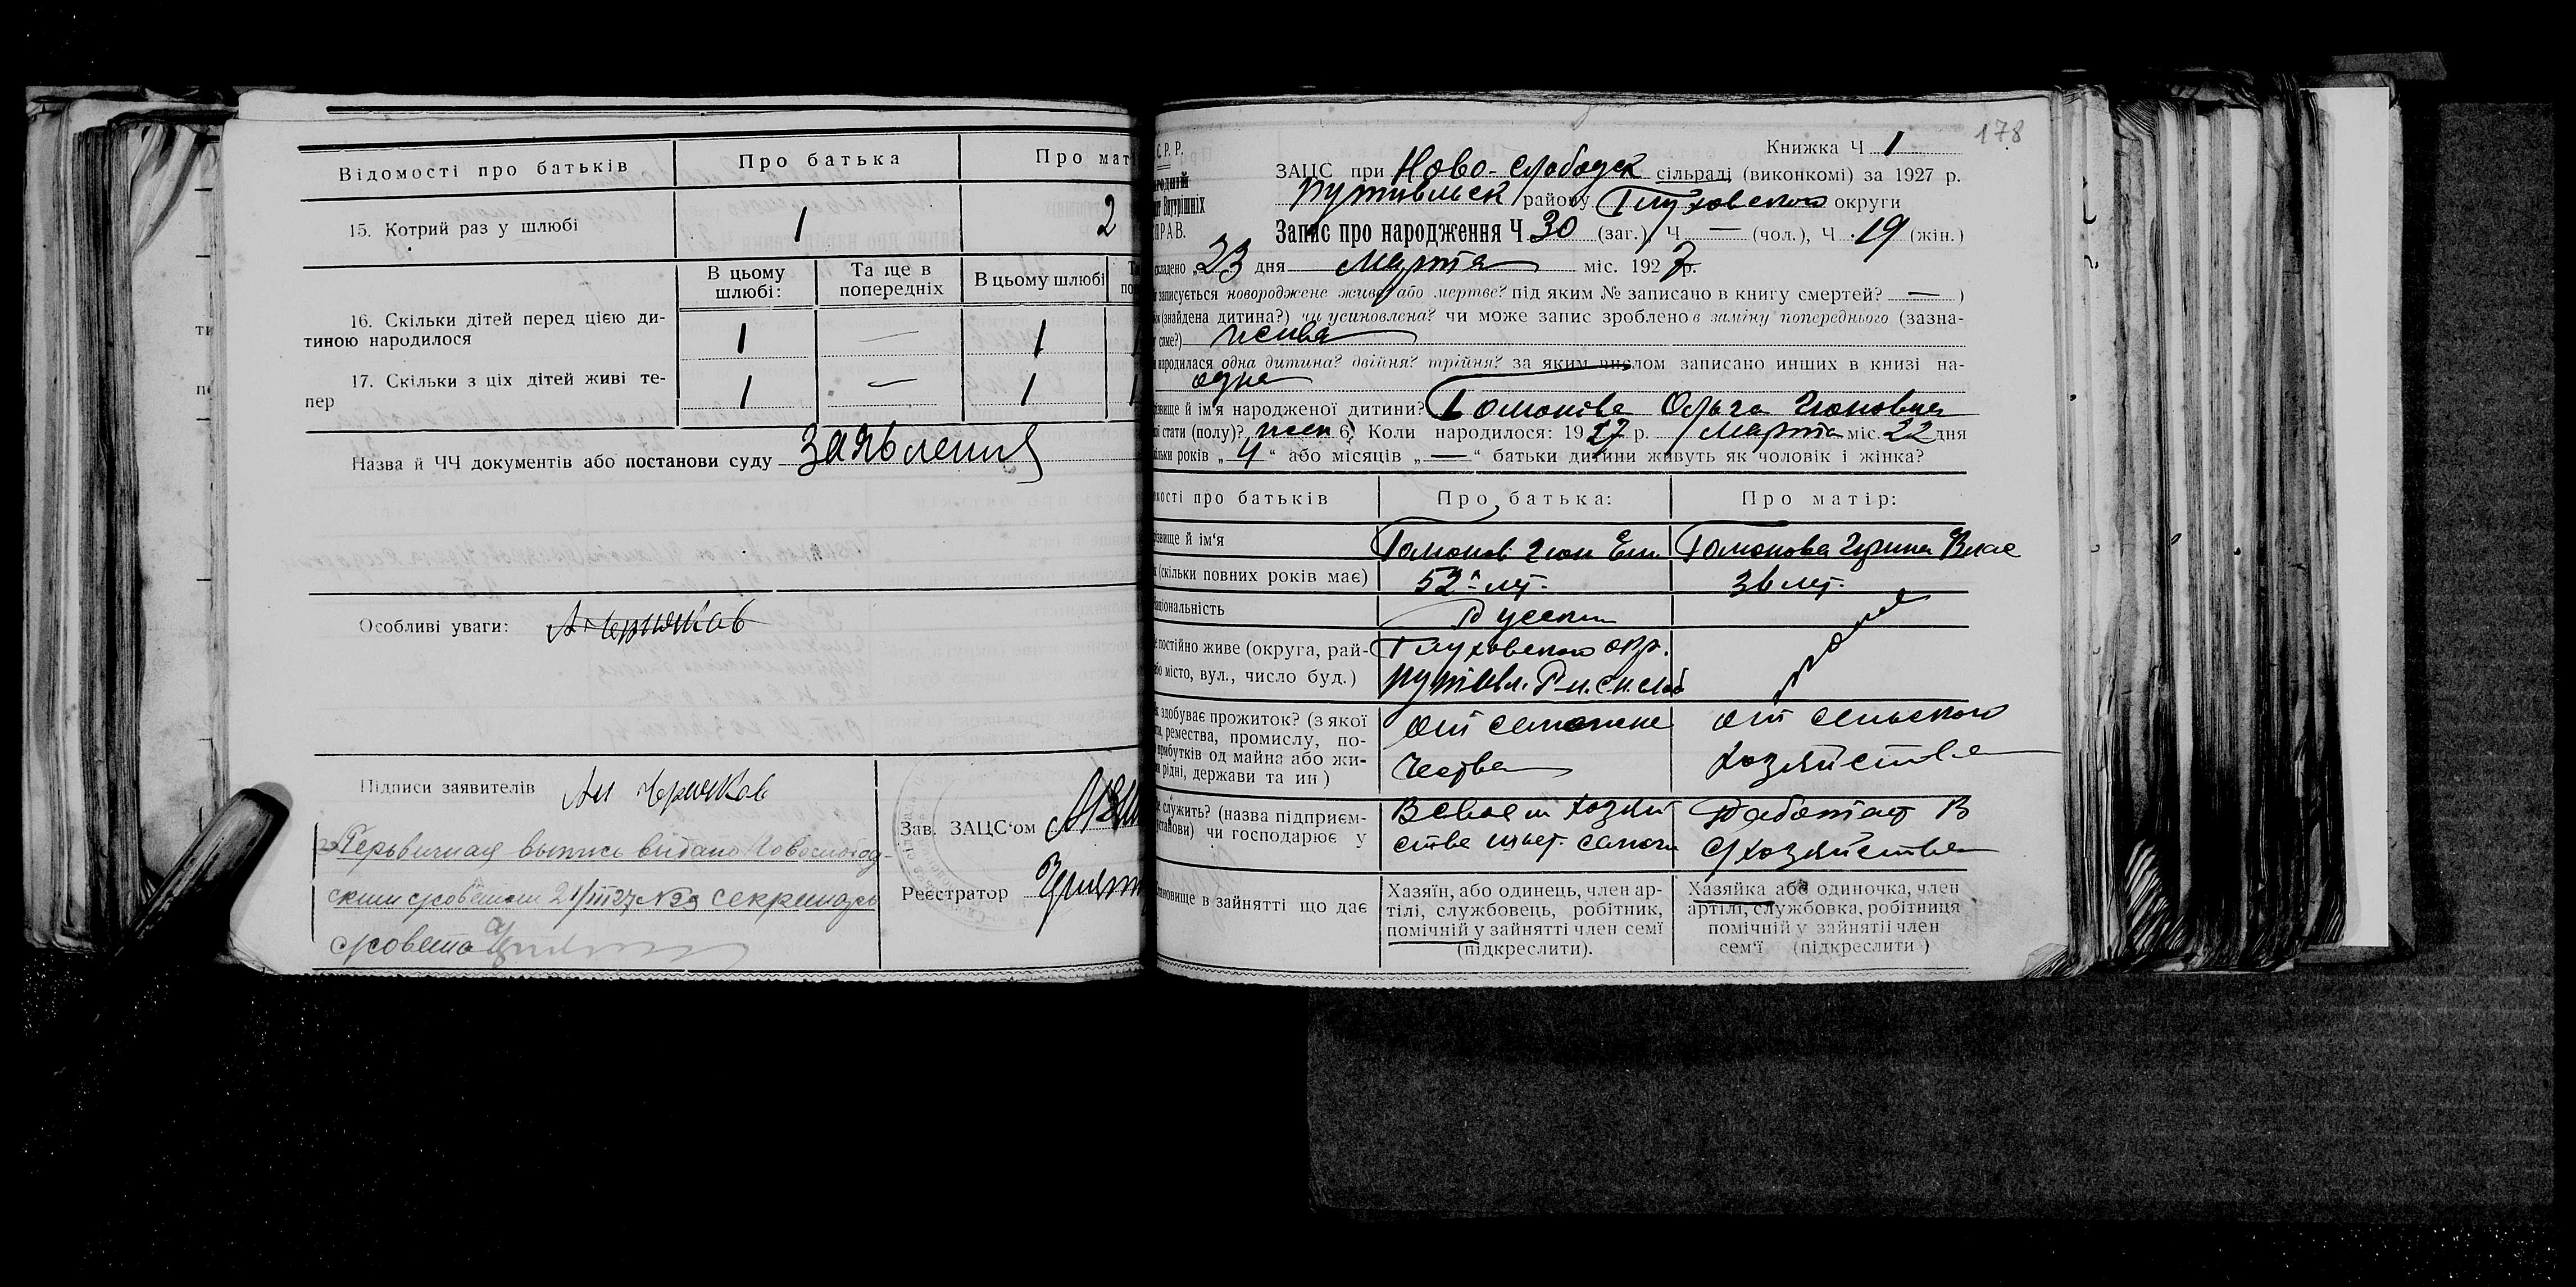 Відомості про батьків
Про батька
Про мат
15. Котрий раз у шлюбі
1
2
В цьому шлюбі:
Та ще в попередніх
В цьому шлюбі
16. Скільки дітей перед цією ди-
тиною народилося
1
—
1
17. Скільки з ціх дітей живі те-
пер
1
—
1
Назва й ЧЧ документів або постанови суду заявления
Особливі уваги:
Підписи заявителів
Первичная выпись видана Новослобод-
ским с/советом 21/III 27 № 29 секретарь
с/совета
Зав. ЗАЦС'ом
Реєстратор
178
С.Р.Р.
Книжка Ч 1
ЗАЦС при Ново-слободск сільраді (виконкомі) за 1927 р.
Внутрішніх
Путивльск району Глуховского округи
ПРАВ.
Запис про народження Ч 30 (заг.), Ч — (чол.), Ч 19 (жін.)
складено „23 дня Марта міс. 1927 р.
записується новороджене живе або мертве? під яким № записано в книгу смертей? — )
(знайдена дитина?) чи усиновлена? чи може запис зроблено в заміну попереднього (зазна-
саме?) живая
народилася одна дитина? двійня? трійня? за яким числом записано инших в книзі на-
одна
звище й ім'я народженої дитини? Гомонова Ольга Ионовна
стати (полу)? жен 6) Коли народилося: 1927 р. Марта міс. 22 дня
льки років „4“ або місяців „—“ батьки дитини живуть як чоловік і жінка?
мості про батьків
Про батька:
Про матір:
звище й ім'я
Гомонов Ион Ем
Гомонова Ирина Влас
(скільки повних років має)
52 лет.
36 лет.
національність
Русский
постійно живе (округа, рай-
або місто, вул., число буд.)
Глуховского окр.
Путивл. Р-н. с. Н. слоб
здобуває прожиток? (з якої
ремества, промислу, по-
прибутків од майна або жи-
рідні, держави та ин)
от сапожни
чества
от сельского
хозяйства
служить? (назва підприєм-
установи) чи господарює у
В своем хозяй
стве
Работает в
с/хозяйстве
становище в зайнятті що дає
Хазяїн, або одинець, член ар-
тілі, службовець, робітник,
помічній у зайнятті член семї
(підкреслити).
Хазяйка або одиночка, член
артілі, службовка, робітниця
помічній у зайнятії член
сем'ї (підкреслити)